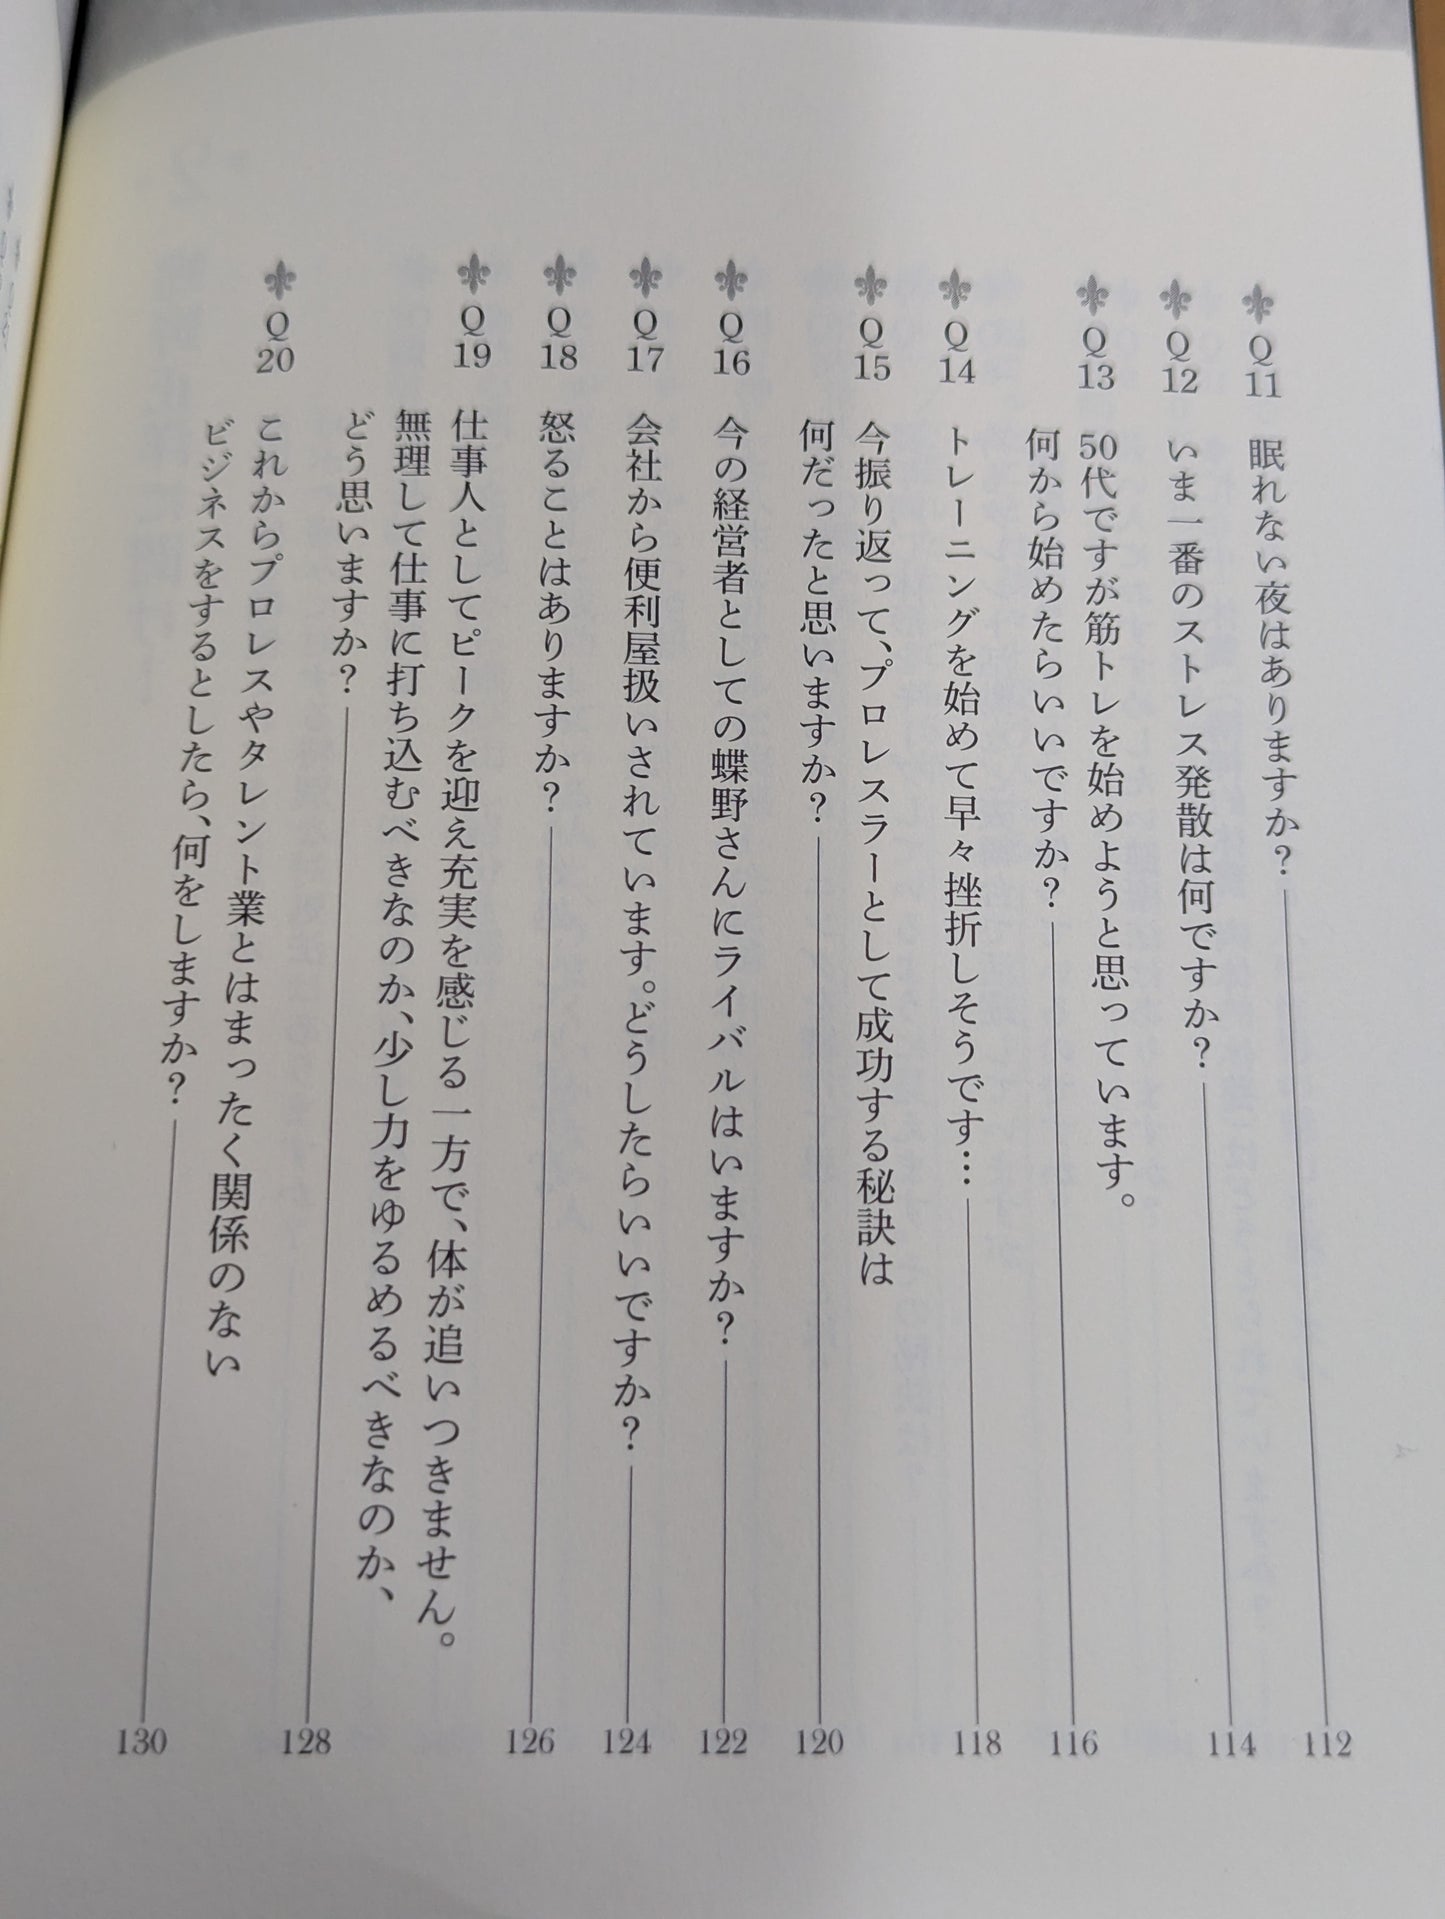 Q11 眠れない夜はありますか? 112
Q12 いま一番のストレス発散は何ですか? 114
Q13 50代ですが筋トレを始めようと思っています。
何から始めたらいいですか? 116
Q14 トレーニングを始めて早々挫折しそうです… 118
Q15 今振り返って、プロレスラーとして成功する秘訣は
何だったと思いますか? 120
Q16 今の経営者としての蝶野さんにライバルはいますか? 122
Q17 会社から便利屋扱いされています。どうしたらいいですか? 124
Q18 怒ることはありますか? 126
Q19 仕事人としてピークを迎え充実を感じる一方で、体が追いつきません。
無理して仕事に打ち込むべきなのか、少し力をゆるめるべきなのか、
どう思いますか? 128
Q20 これからプロレスやタレント業とはまったく関係のない
ビジネスをするとしたら、何をしますか? 130